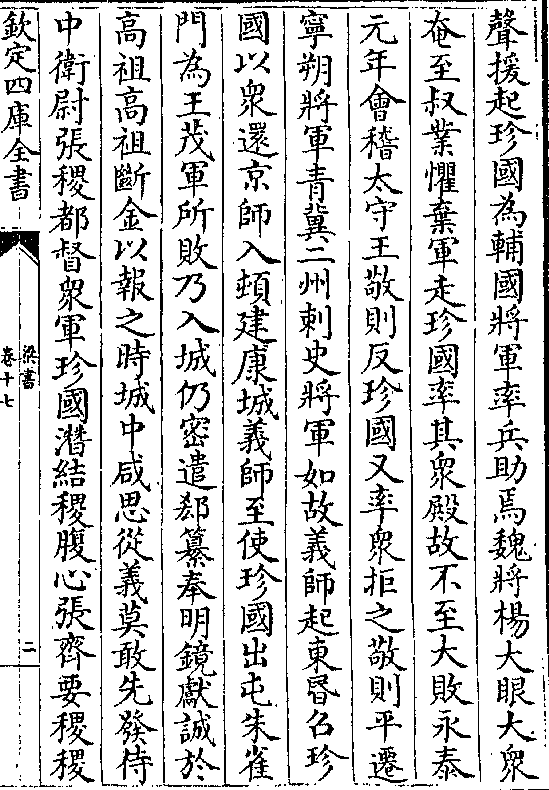 聲援起珍國為輔國將軍率兵助焉魏將楊大眼大衆
奄至叔業懼棄軍走珍國率其衆殿故不至大敗永泰
元年會稽太守王敬則反珍國又率衆拒之敬則平遷
寧朔將軍青冀二州刺史將軍如故義師起東昏召珍
國以衆還京師入頓建康城義師至使珍國出屯朱雀
門為王茂軍所敗乃入城仍密遣郄纂奉明鏡獻誠於
高祖高祖斷金以報之時城中咸思從義莫敢先發侍
中衛尉張稷都督衆軍珍國潛結稷腹心張齊要稷稷
欽定四庫全書
梁書
卷十七
二